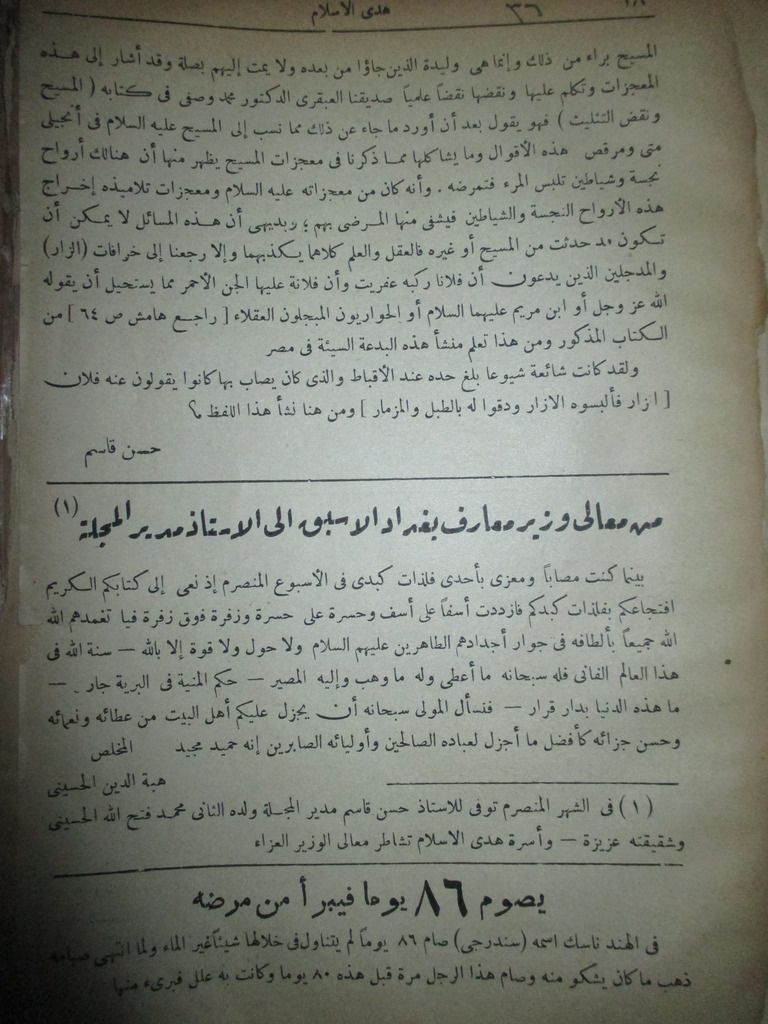 هدى الأسلام ٣٦
المسيح براء من ذلك وإنما هى وليدة الذين جاؤا من بعده ولا يمت إليهم بصلة وقد أشار إلى هذه
المعجزات وتكلم عليها ونقضها نقضاً علمياً صديقنا العبقرى الدكتور محمد وصفى فى كتابه ( المسيح
ونقض التثليث ) فهو يقول بعد أن أورد ما جاء عن ذلك مما نسب إلى المسيح عليه السلام فى أنجيلى
متى ومرقص هذه الأقوال وما يشاكلها مما ذكرنا فى معجزات المسيح يظهر منها أن هنالك أرواح
نجسة وشياطين تلبس المرء فتمرضه . وأنه كان من معجزاته عليه السلام ومعجزات تلاميذه إخراج
هذه الأرواح النجسة والشياطين فيشفى منها المرضى بهم ؛ وبديهى أن هذه المسائل لا يمكن أن
تكون قد حدثت من المسيح أو غيره فالعقل والعلم كلاهما يكذبهما وإلا رجعنا إلى خرافات (الزار)
والمدجلين الذين يدعون أن فلانا ركبه عفريت وأن فلانة عليها الجن الأحمر مما يستحيل أن يقوله
الله عز وجل أو ابن مريم عليهما السلام أو الحواريون المبجلون العقلاء [ راجع هامش ص ٦٤ ] من
الكتاب المذكور ومن هذا تعلم منشأ هذه البدعة السيئة فى مصر
ولقد كانت شائعة شيوعا بلغ حده عند الأقباط والذى كان يصاب بها كانوا يقولون عنه فلان
[ ازار فألبسوه الازار ودقوا له بالطبل والمزمار ] ومن هنا نشأ هذا اللفظ ؟
حسن قاسم
من معالى وزير معارف بغداد الاسبق الى الاستاذ مدير المجلة (١)
بينما كنت مصاباً ومعزى بأحدى فلذات كبدى فى الأسبوع المنصرم إذ نعى إلى كتابكم الكريم
افتجاعكم بفلذات كبدكم فازددت أسفاً على أسف وحسرة على حسرة وزفرة فوق زفرة فيا تغمدهم الله
الله جميعاً بألطافه فى جوار أجدادهم الطاهرين عليهم السلام ولا حول ولا قوة إلا بالله — سنة الله فى
هذا العالم الفانى فله سبحانه ما أعطى وله ما وهب وإليه المصير — حكم المنية فى البرية جار —
ما هذه الدنيا بدار قرار — فنسأل المولى سبحانه أن يجزل عليكم أهل البيت من عطائه ونعمائه
وحسن جزائه كأفضل ما أجزل لعباده الصالحين وأوليائه الصابرين إنه حميد مجيد المخلص
هبة الدين الحسينى
(١) فى الشهر المنصرم توفى للاستاذ حسن قاسم مدير المجلة ولده الثانى محمد فتح الله الحسينى
وشقيقته عزيزة — وأسرة هدى الاسلام تشاطر معالى الوزير العزاء
يصوم ٨٦ يوما فيبرأ من مرضه
فى الهند ناسك اسمه (سندرجى) صام ٨٦ يوماً لم يتناول فى خلالها شيئاً غير الماء ولما انتهى صيامه
ذهب ما كان يشكو منه وصام هذا الرجل مرة قبل هذه ٨٠ يوما وكانت به علل فبرىء منها